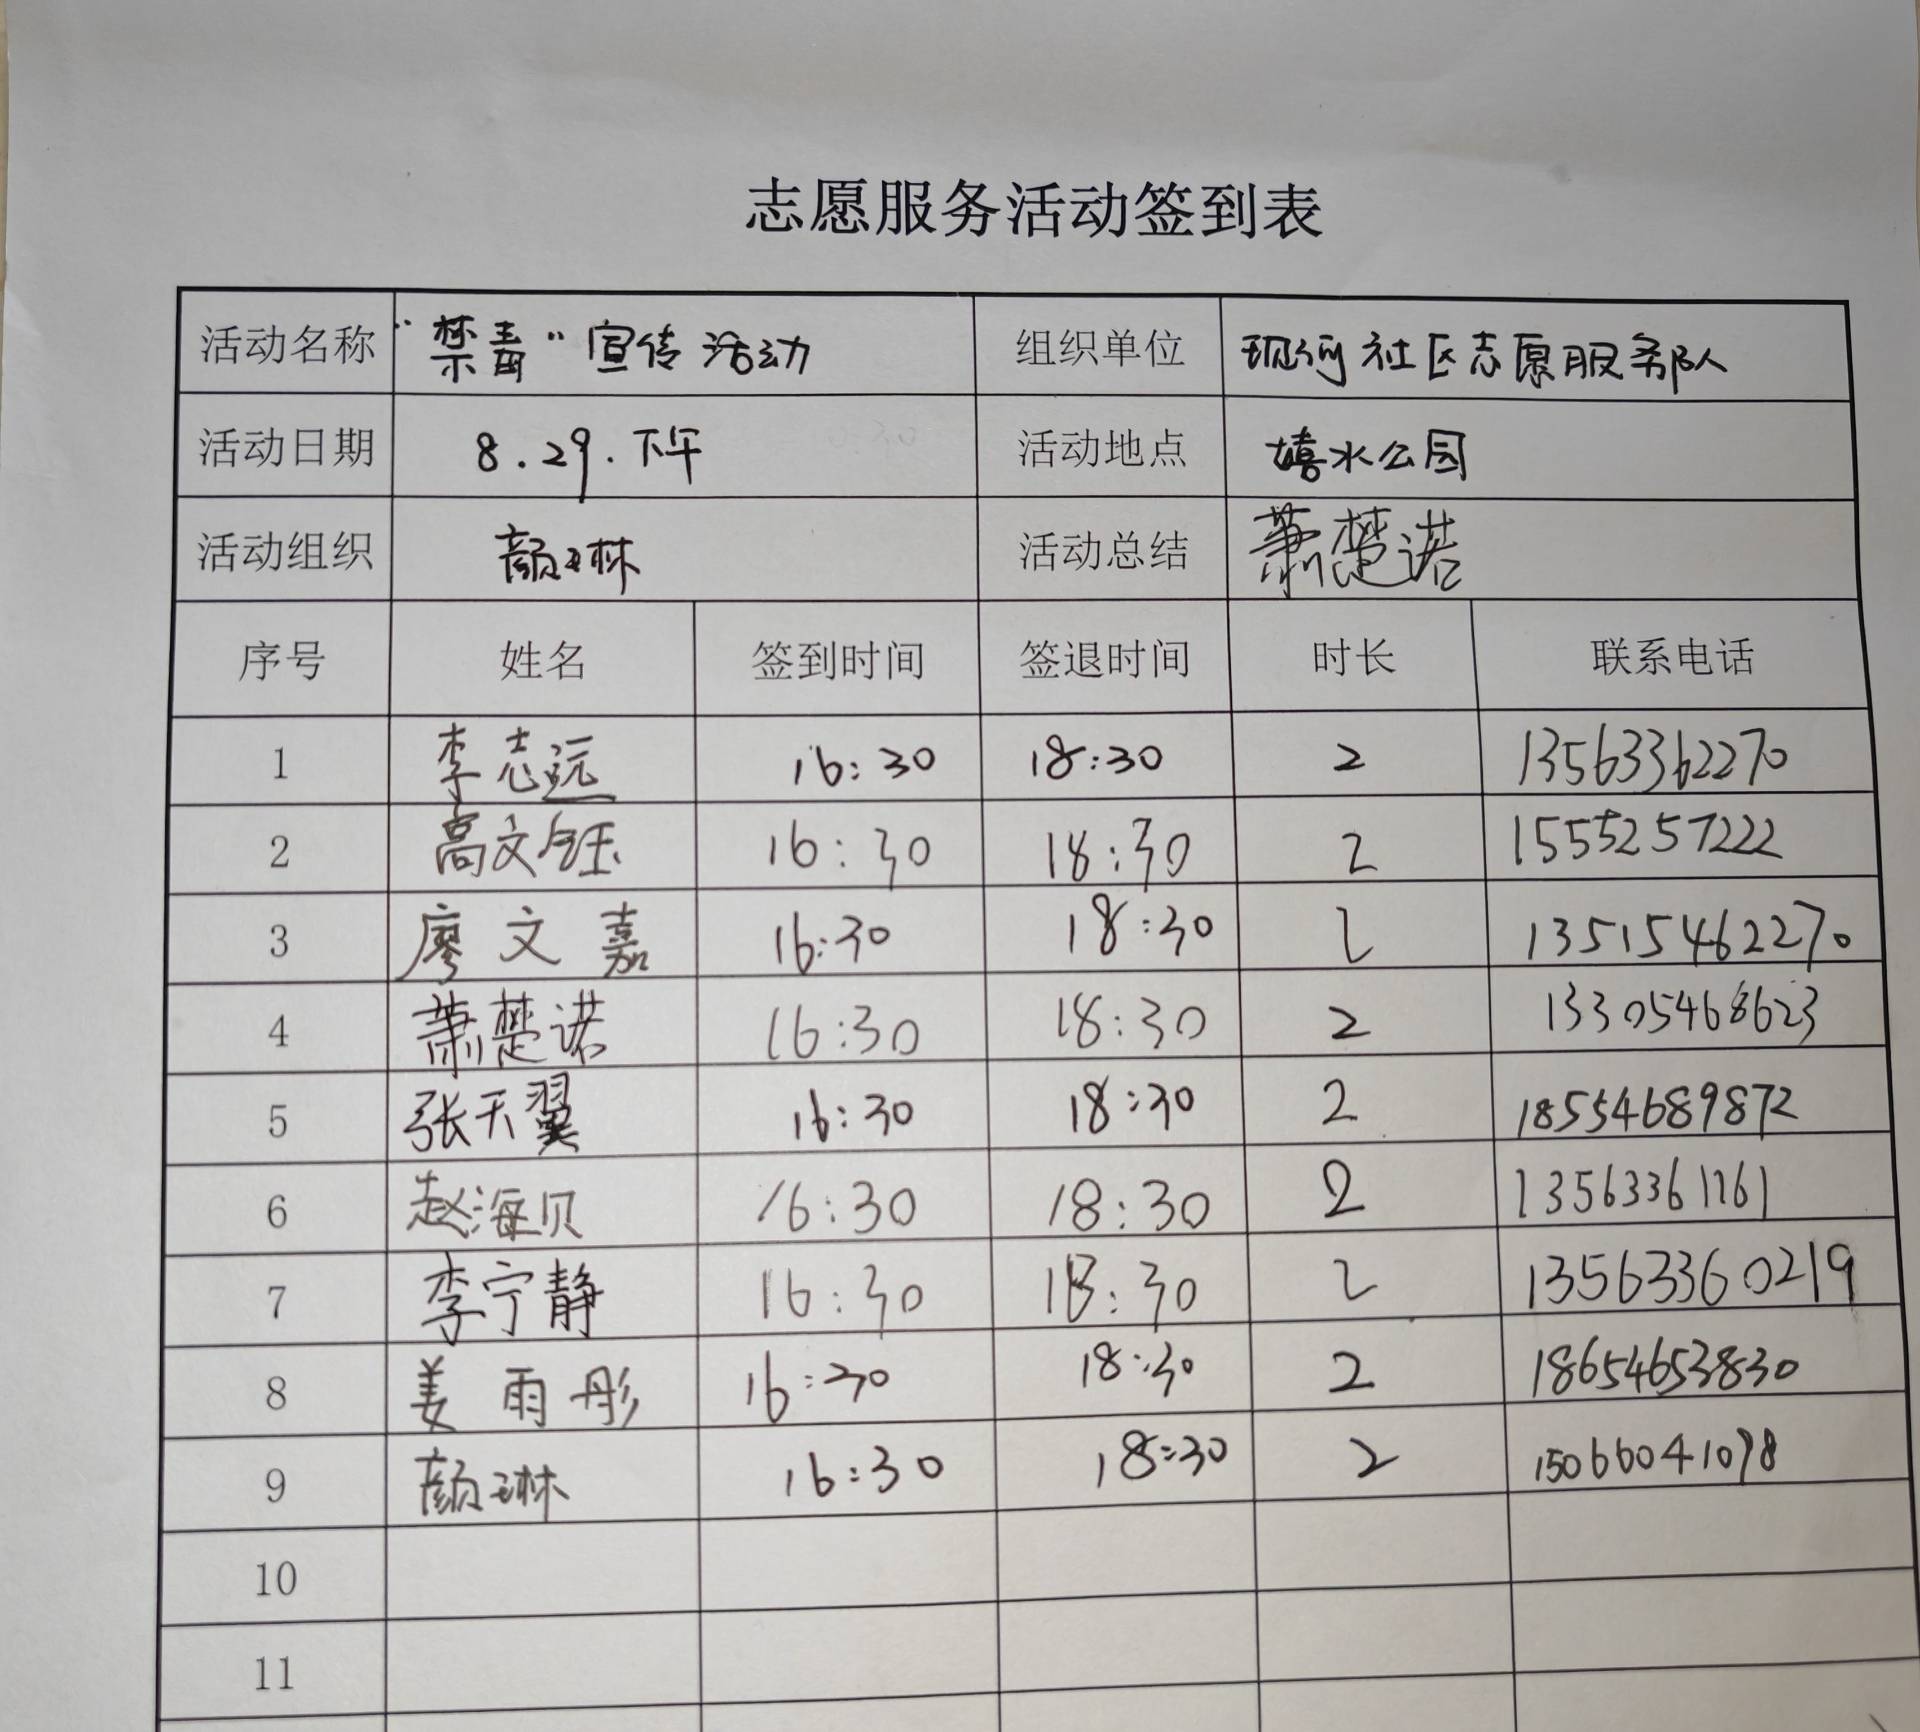 志愿服务活动签到表
活动名称 “禁毒”宣传活动 组织单位 现河社区志愿服务队
活动日期 8.29.下午 活动地点 嬉水公园
活动组织 颜琳 活动总结 萧楚诺
序号 姓名 签到时间 签退时间 时长 联系电话
1 李志远 16:30 18:30 2 13563362270
2 高文钰 16:30 18:30 2 15552557222
3 廖文嘉 16:30 18:30 2 13515462270
4 萧楚诺 16:30 18:30 2 13305468623
5 张天翼 16:30 18:30 2 18554689872
6 赵海贝 16:30 18:30 2 13563361161
7 李宁静 16:30 18:30 2 13563360219
8 姜雨彤 16:30 18:30 2 18654653830
9 颜琳 16:30 18:30 2 15066041098
10
11